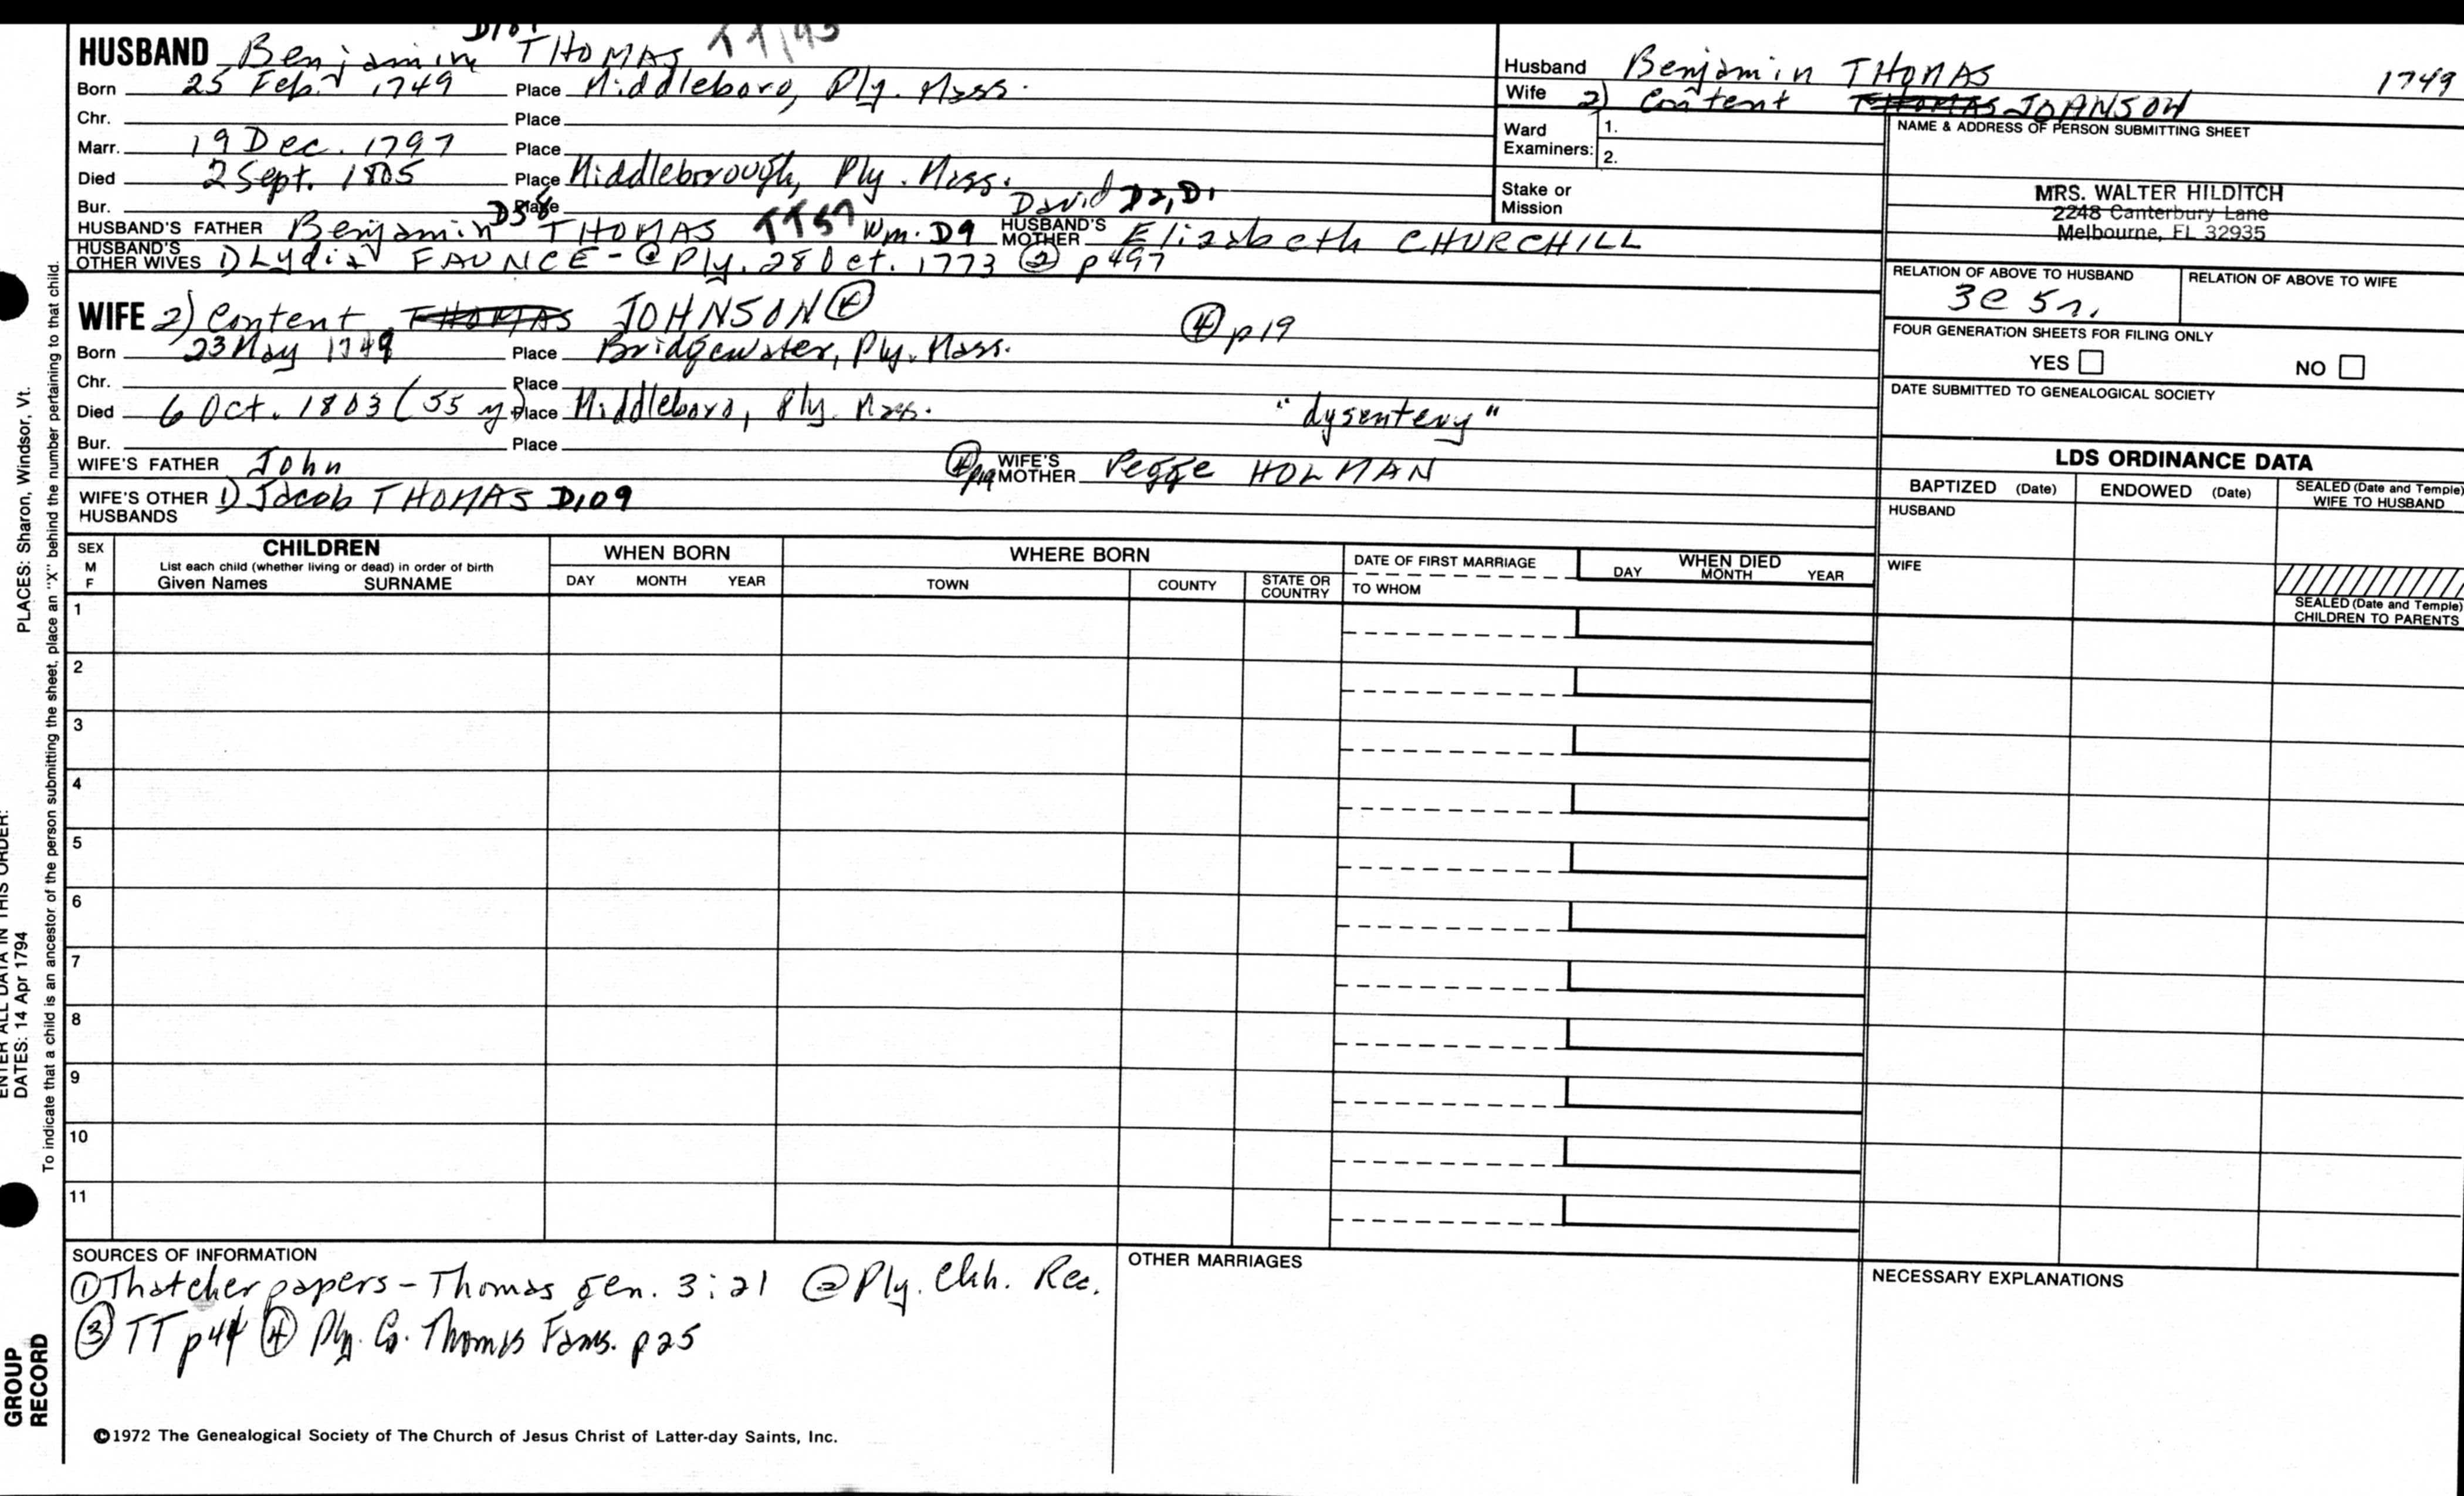 HUSBAND Benjamin THOMAS
Born 25 Feb. 1749 Place Middleboro, Ply. Mass.
Chr. Place
Marr. 19 Dec. 1797 Place
Died 2 Sept. 1805 Place Middleborough, Ply. Mass.
Bur. Place David D2, D1
HUSBAND'S FATHER Benjamin D38 THOMAS TT57 Wm. D9 HUSBAND'S MOTHER Elizabeth CHURCHILL
HUSBAND'S OTHER WIVES 1) Lydia FAUNCE - @ Ply. 28 Oct. 1773 ② p497
WIFE 2) Content THOMAS JOHNSON ④
④ p19
Born 23 May 1749 Place Bridgewater, Ply. Mass.
Chr. Place
Died 6 Oct. 1803 (55 y) Place Middleboro, Ply. Mass. "dysentery"
Bur. Place
WIFE'S FATHER John ④ p19 WIFE'S MOTHER Pegge HOLMAN
WIFE'S OTHER HUSBANDS 1) Jacob THOMAS D109
Husband Benjamin THOMAS 1749
Wife 2) Content THOMAS JOHNSON
Ward Examiners: 1.
2.
Stake or Mission
NAME & ADDRESS OF PERSON SUBMITTING SHEET
MRS. WALTER HILDITCH
2248 Canterbury Lane
Melbourne, FL 32935
RELATION OF ABOVE TO HUSBAND RELATION OF ABOVE TO WIFE
3C 5r.
FOUR GENERATION SHEETS FOR FILING ONLY
YES NO
DATE SUBMITTED TO GENEALOGICAL SOCIETY
LDS ORDINANCE DATA
BAPTIZED (Date) ENDOWED (Date) SEALED (Date and Temple) WIFE TO HUSBAND
HUSBAND
WIFE
SEALED (Date and Temple) CHILDREN TO PARENTS
SEX M F
CHILDREN
List each child (whether living or dead) in order of birth
Given Names SURNAME
WHEN BORN
DAY MONTH YEAR
WHERE BORN
TOWN COUNTY STATE OR COUNTRY
DATE OF FIRST MARRIAGE
TO WHOM
WHEN DIED
DAY MONTH YEAR
1
2
3
4
5
6
7
8
9
10
11
SOURCES OF INFORMATION
① Thatcher papers - Thomas gen. 3:21 ② Ply. Chh. Rec.
③ TT p44 ④ Ply. Co. Thomas Fams. p25
OTHER MARRIAGES
NECESSARY EXPLANATIONS
©1972 The Genealogical Society of The Church of Jesus Christ of Latter-day Saints, Inc.
PLACES: Sharon, Windsor, Vt.
To indicate that a child is an ancestor of the person submitting the sheet, place an "X" behind the number pertaining to that child.
ENTER ALL DATA IN THIS ORDER:
DATES: 14 Apr 1794
GROUP RECORD